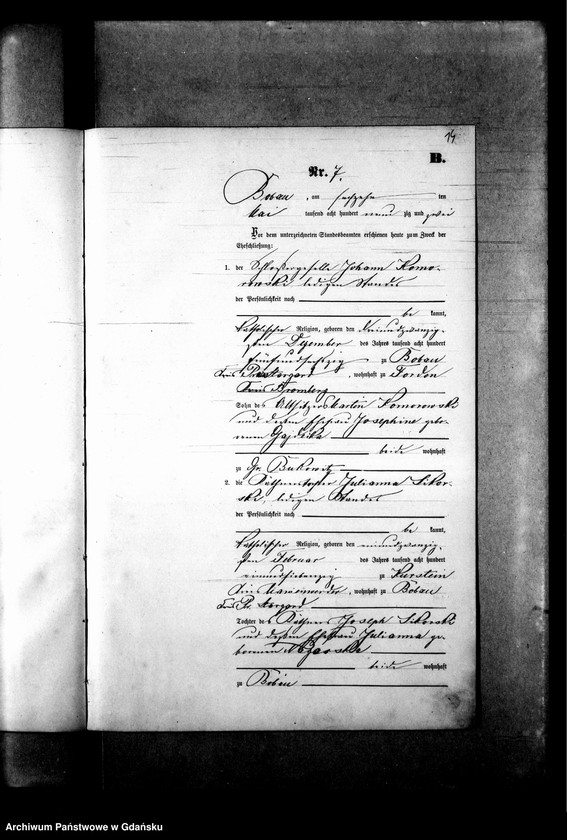 14
B.
Nr. 7.
Bobau, am sechzehn ten
Mai tausend acht hundert neun zig und zwei
Vor dem unterzeichneten Standesbeamten erschienen heute zum Zweck der
Eheschließung:
1. der Schlossergeselle Johann Komo-
rowski, ledigen Standes
der Persönlichkeit nach
be kannt,
katholischer Religion, geboren den
ten Dezember, des Jahres tausend acht hundert
fünfundsechzig zu Bobau
Kreis Pr. Stargard, wohnhaft zu Fordon
Kreis Bromberg
Sohn des Altsitzers Martin Komorowski
und dessen Ehefrau Josephine gebo-
renen
beide wohnhaft
zu Gr. Bukowitz
2. die Käthnertochter Julianna Sikor-
ska, ledigen Standes
der Persönlichkeit nach
be kannt,
katholischer Religion, geboren den neunundzwanzig-
ten Februar des Jahres tausend acht hundert
zu Kurstein
Kreis Marienwerder, wohnhaft zu Bobau
Kreis Pr. Stargard
Tochter des Käthners Joseph Sikorski
und dessen Ehefrau Julianna ge-
borenen
beide wohnhaft
zu Bobau
Archiwum Państwowe w Gdańsku